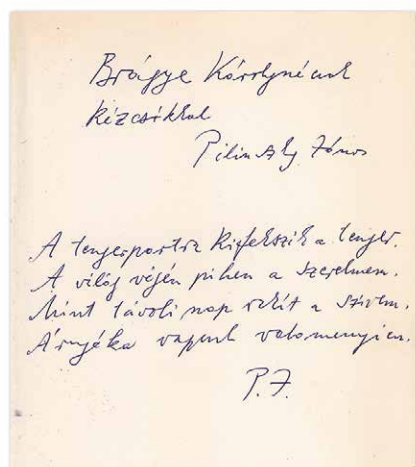 Brágye Károlynénak
kézcsókkal
Pilinszky János
A tengerpartra kifekszik a tenger.
A világ végén pihen a szerelmem.
Mint távoli nap vakít a szivem.
Árnyéka vagyunk valamennyien.
P.J.